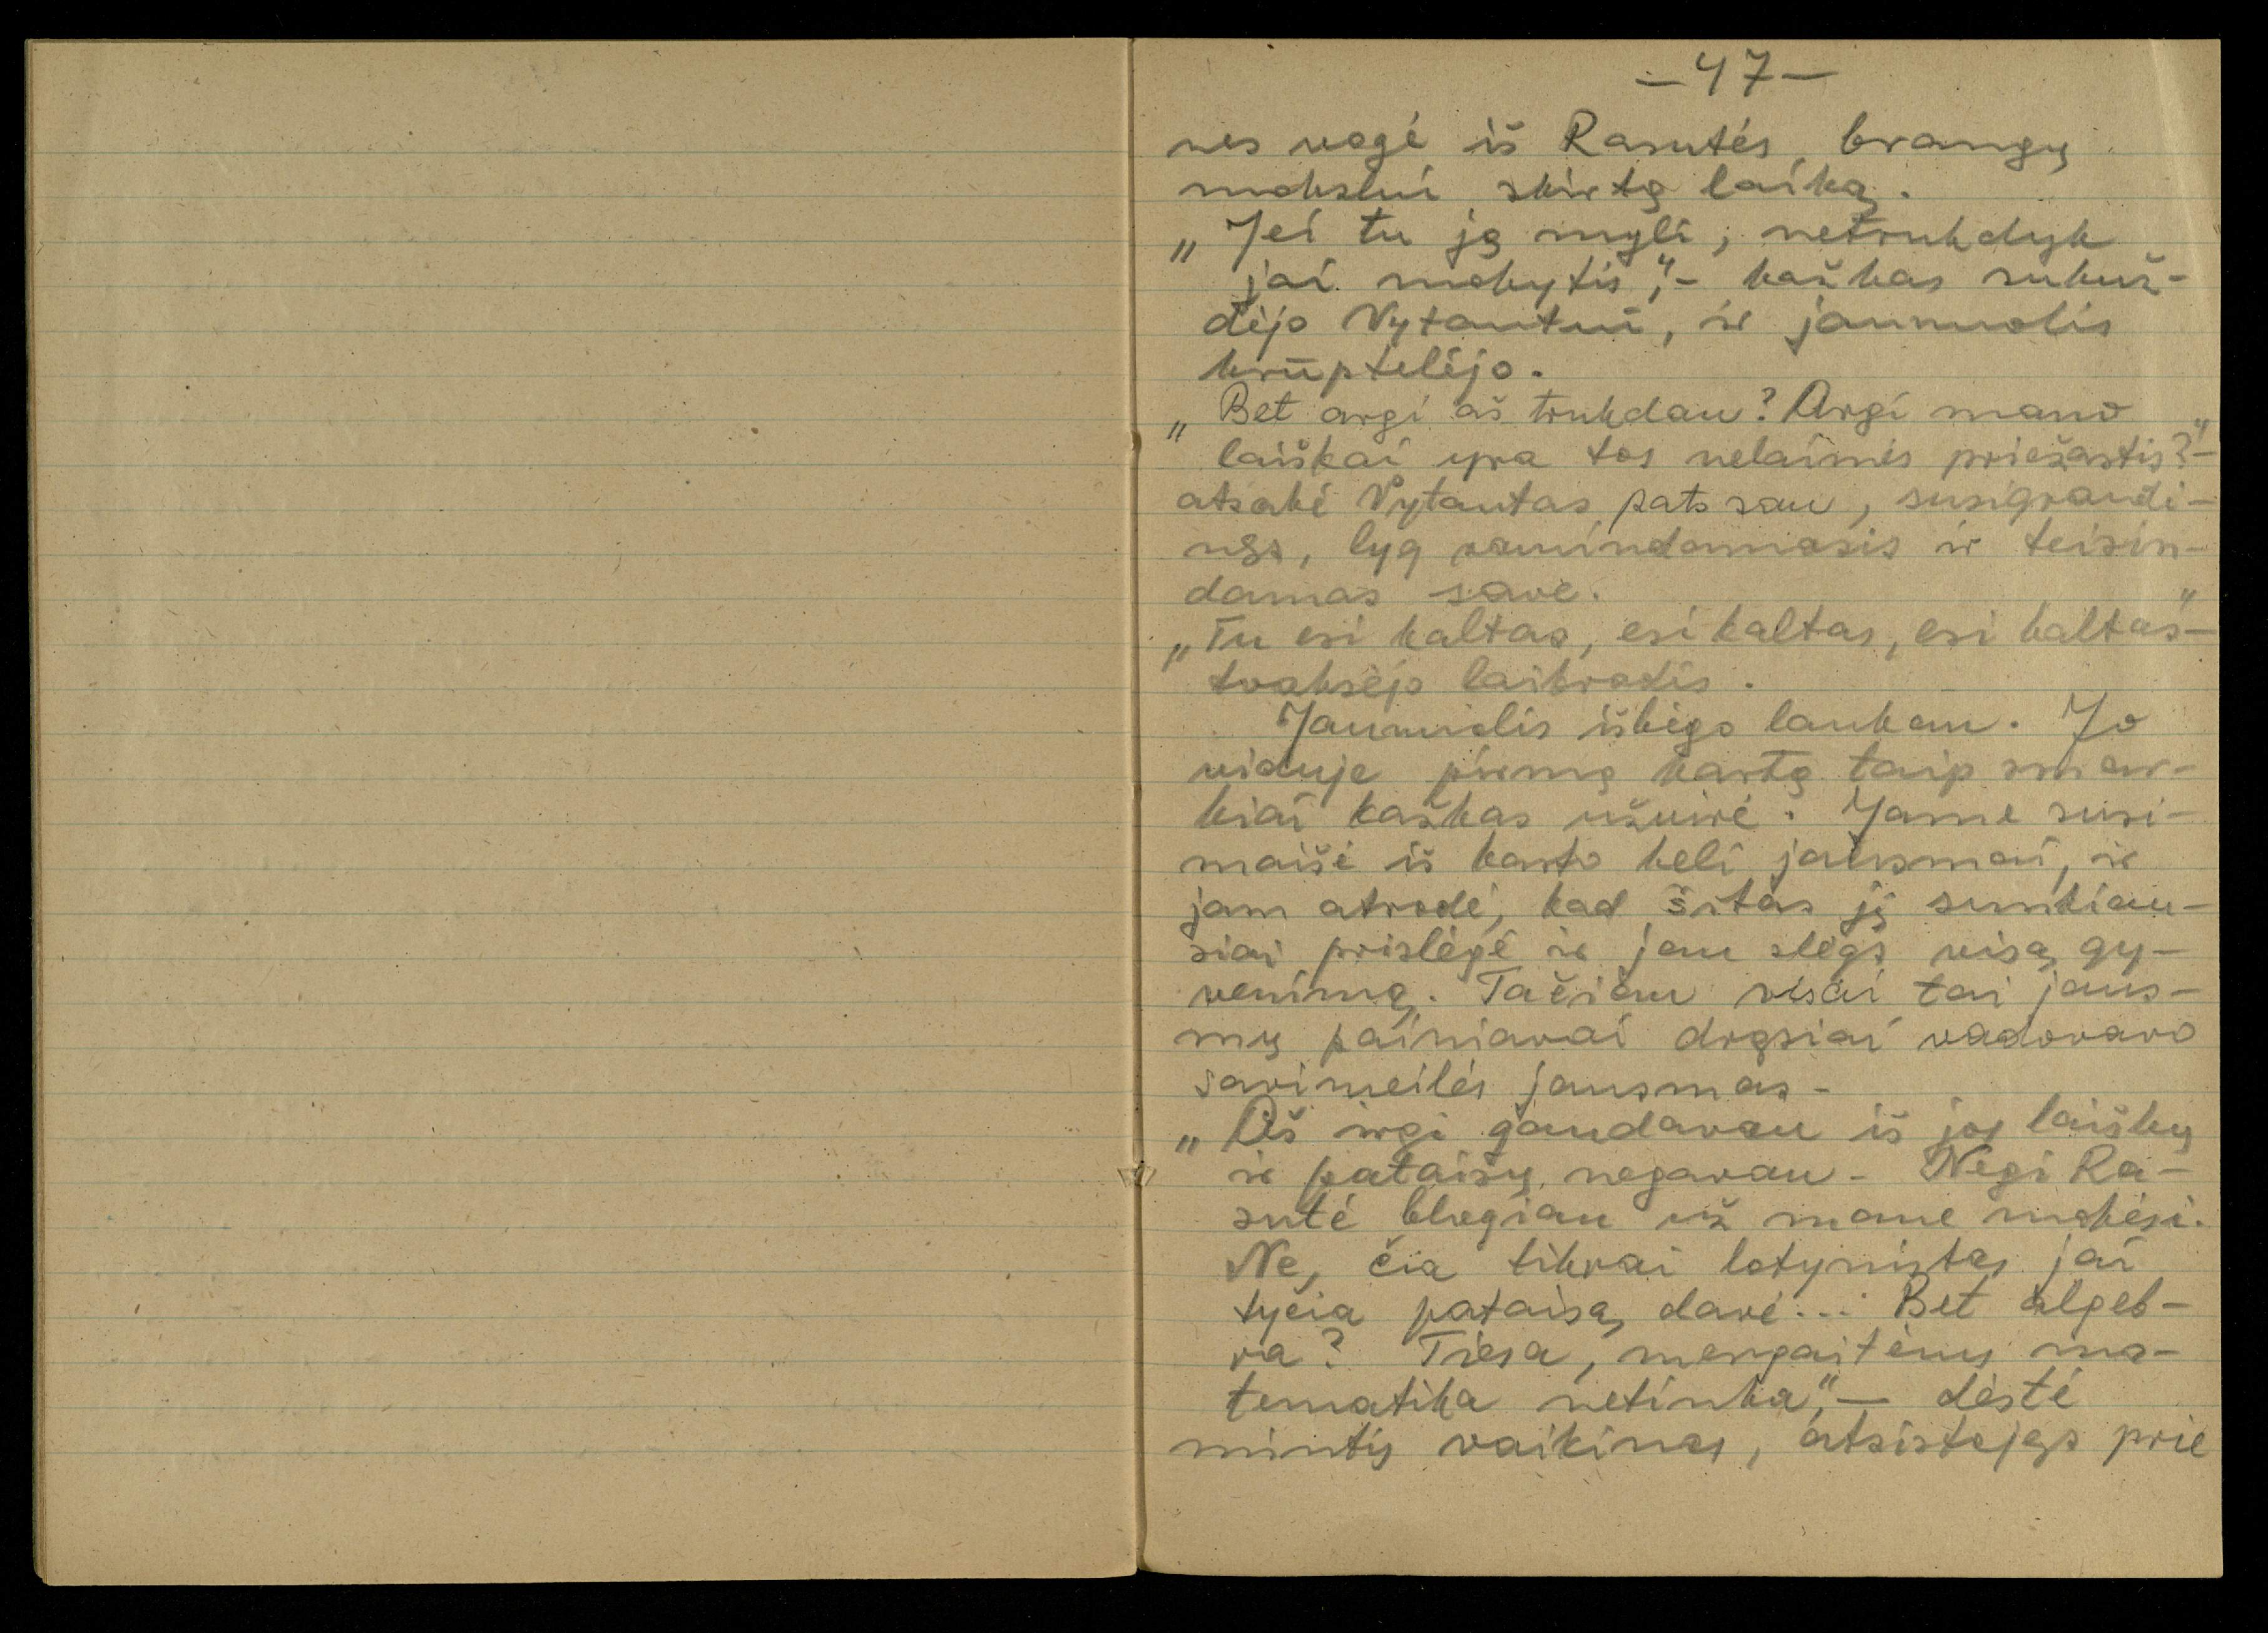 —47—
nes vogė iš Rasutės brangų
mokslui skirtą laiką.
„Jei tu ją myli, netrukdyk
jai mokytis“, – kažkas sukuž-
dėjo Vytautui, ir jaunuolis
krūptelėjo.
„Bet argi aš trukdau? Argi mano
laiškai yra tos nelaimės priežastis?“ –
atsakė Vytautas pats sau, susigraudi-
nęs, lyg ramindamasis ir teisin-
damas save.
„Tu esi kaltas, esi kaltas, esi kaltas“ –
tvaksėjo laikrodis.
Jaunuolis išbėgo laukan. Jo
viduje pirmą kartą taip smar-
kiai kažkas užvirė. Jame susi-
maišė iš karto keli jausmai, ir
jam atrodė, kad šitas jį sunkiau-
siai prislėgė ir jau slėgs visą gy-
venimą. Tačiau visai tai jaus-
mų painiavai drąsiai vadovavo
savimeilės jausmas –
„Aš irgi gaudavau iš jos laiškų
ir pataisų negavau – Negi Ra-
sutė blogiau už mane mokėsi.
Ne, čia tikrai lotynistas jai
tyčia pataisą davė... Bet algeb-
ra? Tiesa, mergaitėms ma-
tematika netinka“, – dėstė
mintis vaikinas, atsistojęs prie